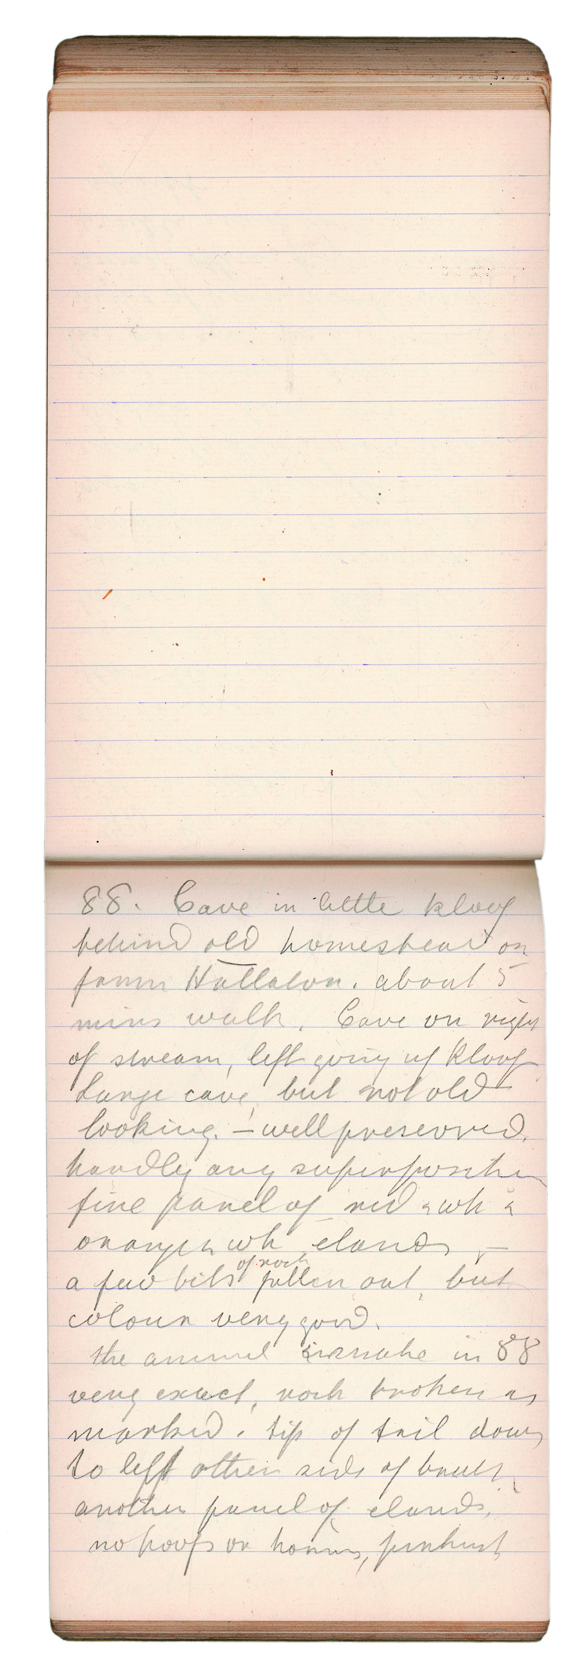 88. Cave in little kloof
behind old homestead on
farm Hallalon. about 5
mins walk. Cave on right
of stream, left going up kloof
Large cave, but not old
looking. – well preserved.
hardly any superposition
fine panel of red & wh &
orange & wh elands, –
a few bits of rock fallen out, but
colour very good.
the animal snake in 88
very exact, rock broken as
marked. tip of tail down
to left other side of
another panel of elands.
no hoofs or horns, pinkish